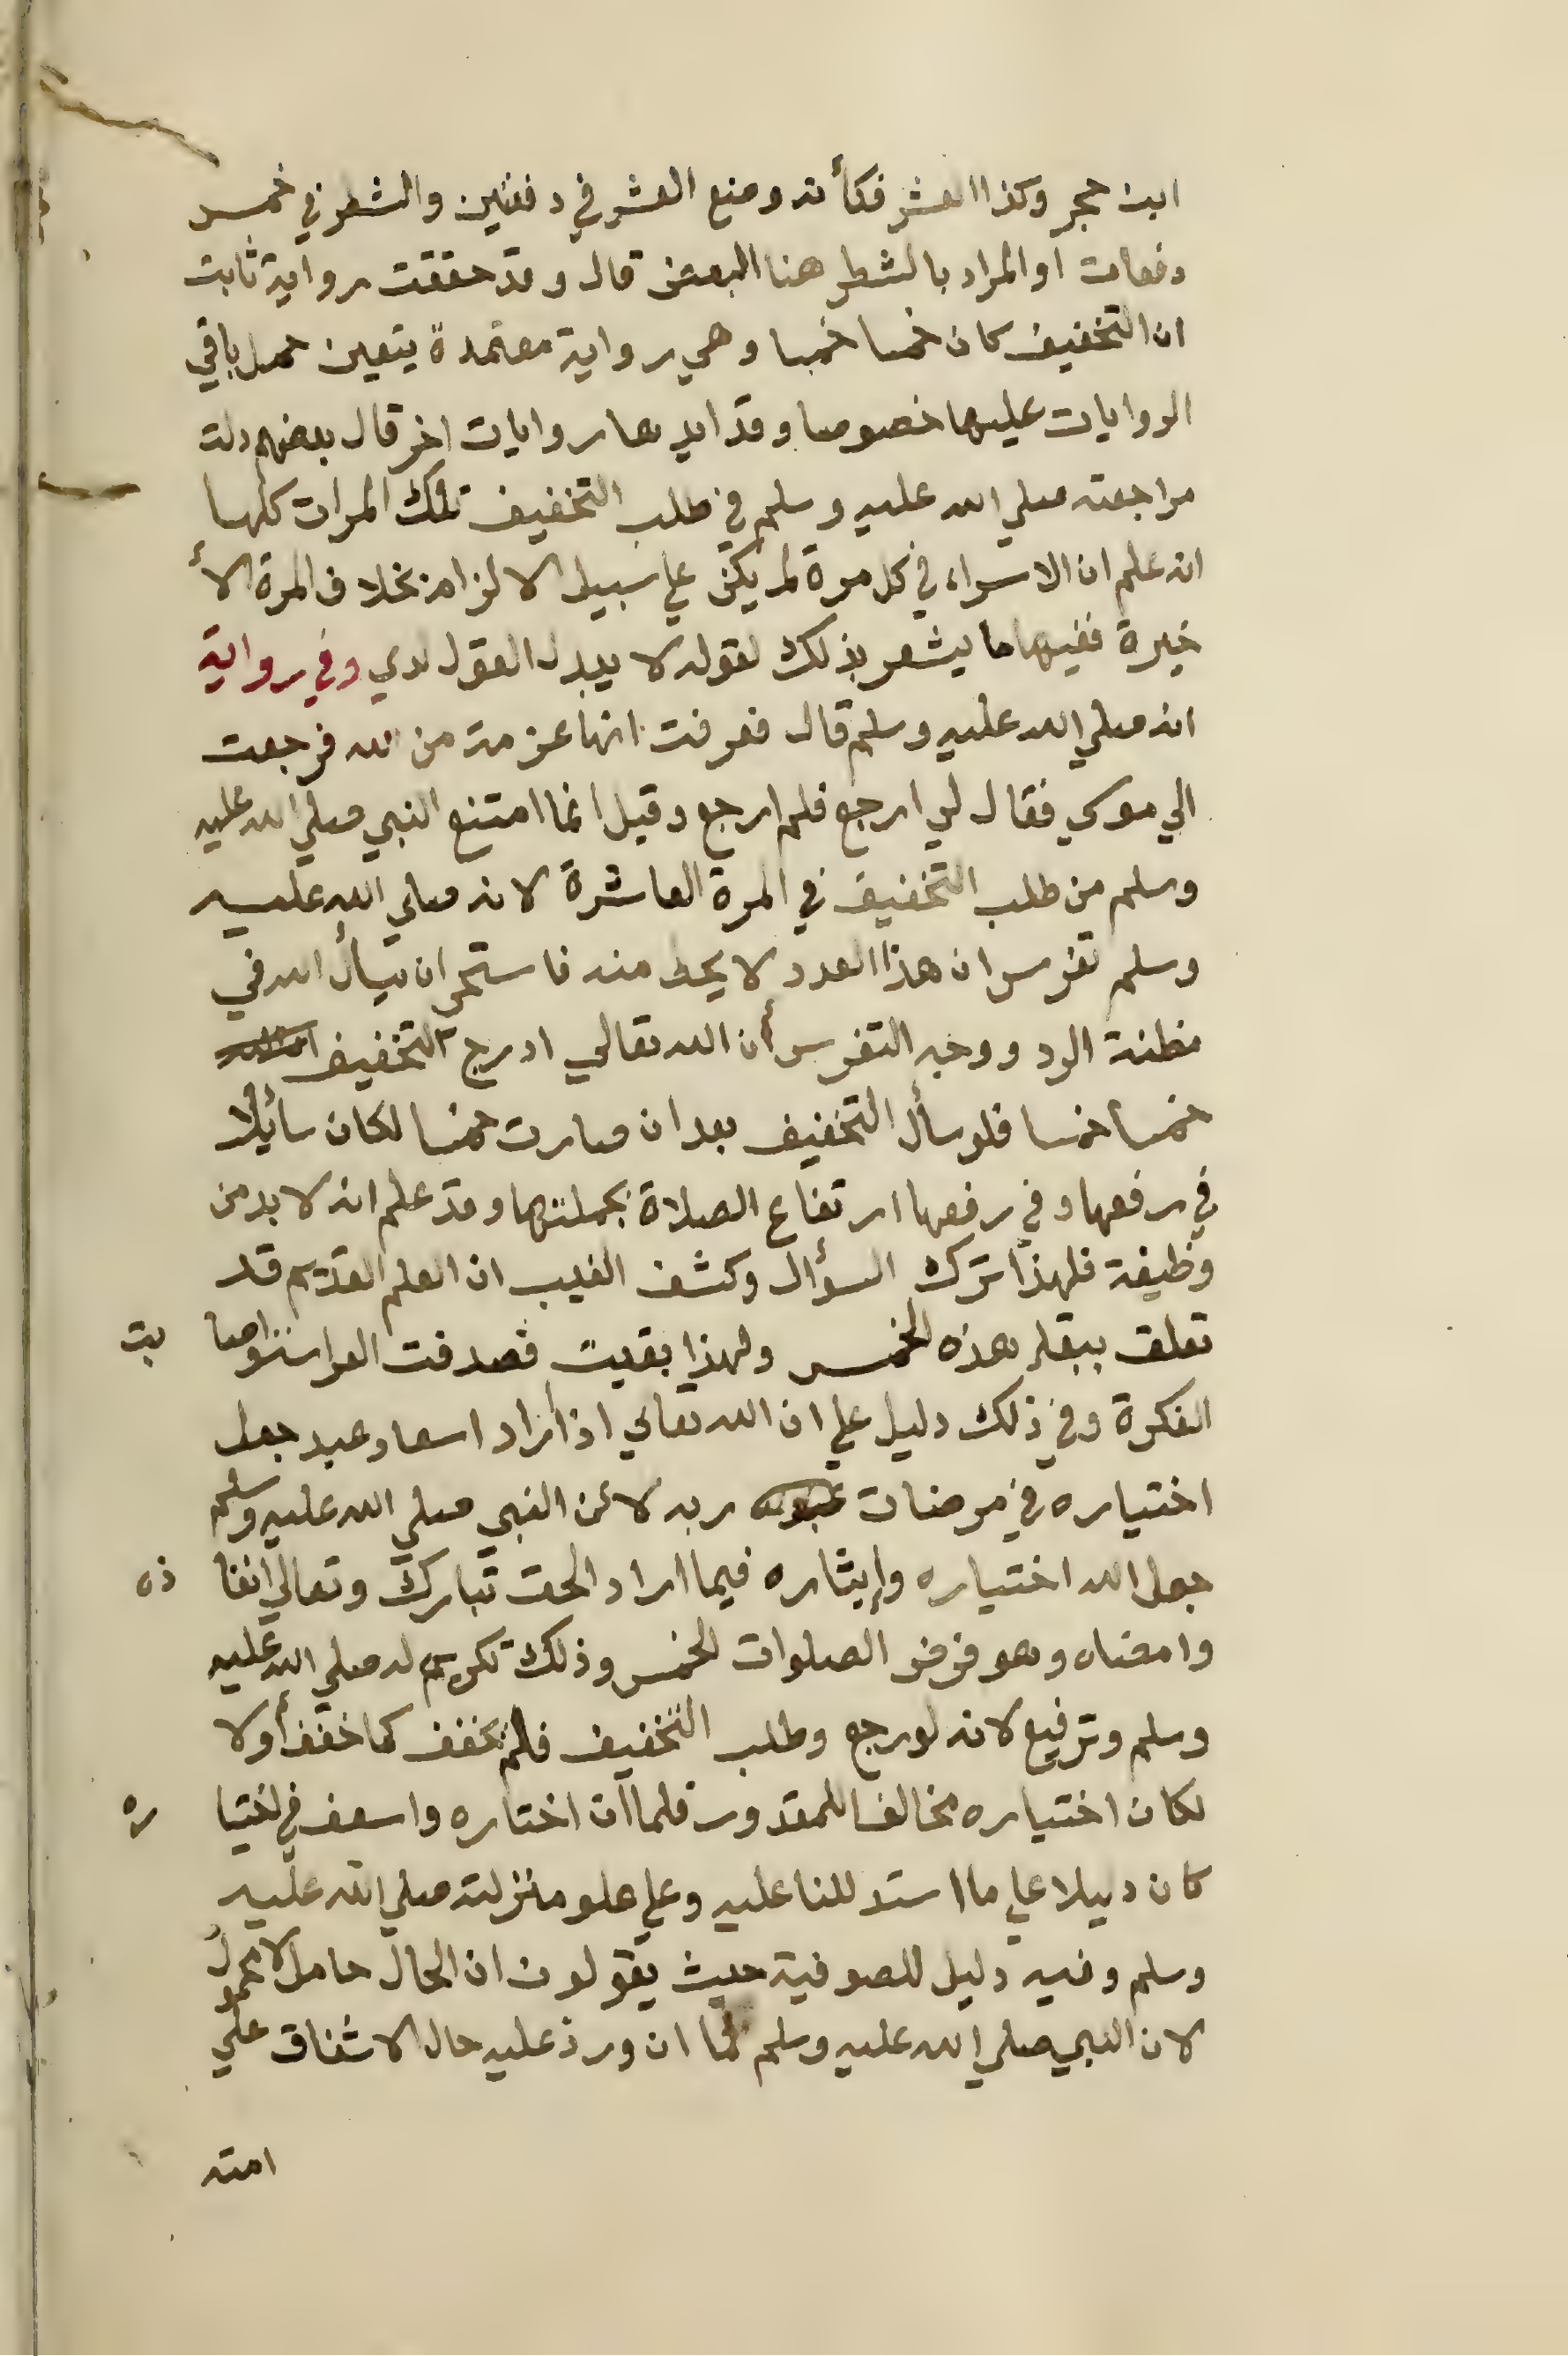 ابن حجر وكذا العشر فكأنه وضع العشر في دفعتين والشطر في خمس
دفعات او المراد بالشطر هنا البعض قال وقد حققت رواية ثابت
ان التخفيف كان خمسا خمسا وهي رواية معتمدة يتعين حمل باقي
الروايات عليها خصوصا وقد ايدها روايات اخر قال بعضهم دلت
مراجعته صلي الله عليه وسلم في طلب التخفيف تلك المرات كلها
انه علم ان الاسراء في كل مرة لم يكن علي سبيل الالزام بخلاف المرة الأ
خيرة ففيها ما يشعر بذلك لقوله لا يبدل القول لدي وفي رواية
انه صلي الله عليه وسلم قال فعرفت انها عزمة من الله فرجعت
الي موسي فقال لي ارجع فلم ارجع وقيل انما امتنع النبي صلي الله عليه
وسلم من طلب التخفيف في المرة العاشرة لانه صلي الله عليه
وسلم تفرس ان هذا العدد لا يحط منه فاستحي ان يسأل الله في
مظنة الرد ووجه التفرس أن الله تعالي ادرج التخفيف
خمسا خمسا فلو سأل التخفيف بعد ان صارت خمسا لكان سائلا
في رفعها وفي رفعها ارتفاع الصلاة بجملتها وقد علم انه لا بد من
وظيفة فلهذا ترك السؤال وكشف الغيب ان العلم القديم قد
تعلق ببقاء هذه الخمس ولهذا بقيت فصدقت الفراسة واصا بت
الفكرة وفي ذلك دليل علي ان الله تعالي اذا اراد اسعاد عبد جعل
اختياره في مرضات ربه لأن النبي صلي الله عليه وسلم
جعل الله اختياره وإيثاره فيما اراد الحق تبارك وتعالي انفا ذه
وامضاه وهو فرض الصلوات الخمس وذلك تكريم له صلي الله عليه
وسلم وترفيع لانه لو رجع وطلب التخفيف فلم يخفف كما خفف أولا
لكان اختياره مخالفا للمقدور فلما أن اختاره واسعف في اختيا ره
كان دليلا علي ما استدللنا عليه وعلي علو منزلته صلي الله عليه
وسلم وفيه دليل للصوفية حيث يقولون ان الحال حامل لا محمول
لان النبي صلي الله عليه وسلم لما ان ورد عليه حال الاشفاق علي
امته